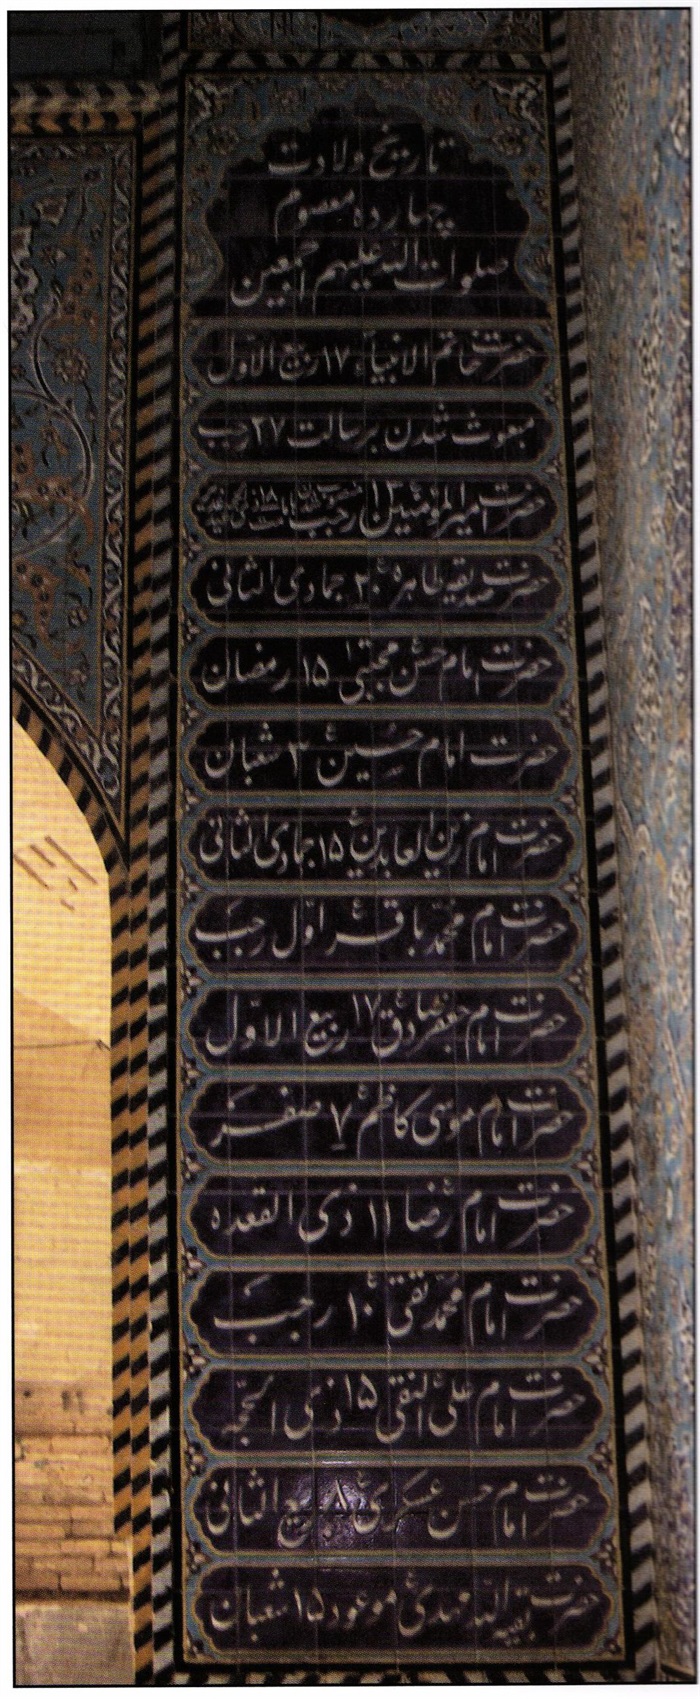 تاریخ ولادت
چهارده معصوم
صلوات الله علیهم اجمعین
حضرت خاتم الانبیاء ۱۷ ربیع الاوّل
مبعوث شدن برسالت ۲۷ رجب
حضرت امیرالمؤمنین ۱۳ رجب
حضرت صدیقه طاهره ۲۰ جمادی الثانی
حضرت امام حسن مجتبی ۱۵ رمضان
حضرت امام حسین ۳ شعبان
حضرت امام زین العابدین ۱۵ جمادی الثانی
حضرت امام محمّد باقر اوّل رجب
حضرت امام جعفر صادق ۱۷ ربیع الاوّل
حضرت امام موسی کاظم ۷ صفر
حضرت امام رضا ۱۱ ذی القعده
حضرت امام محمّد تقی ۱۰ رجب
حضرت امام علیّ النقی ۱۵ ذی الحجّه
حضرت امام حسن عسکری ۸ ربیع الثانی
حضرت بقیة الله مهدی موعود ۱۵ شعبان